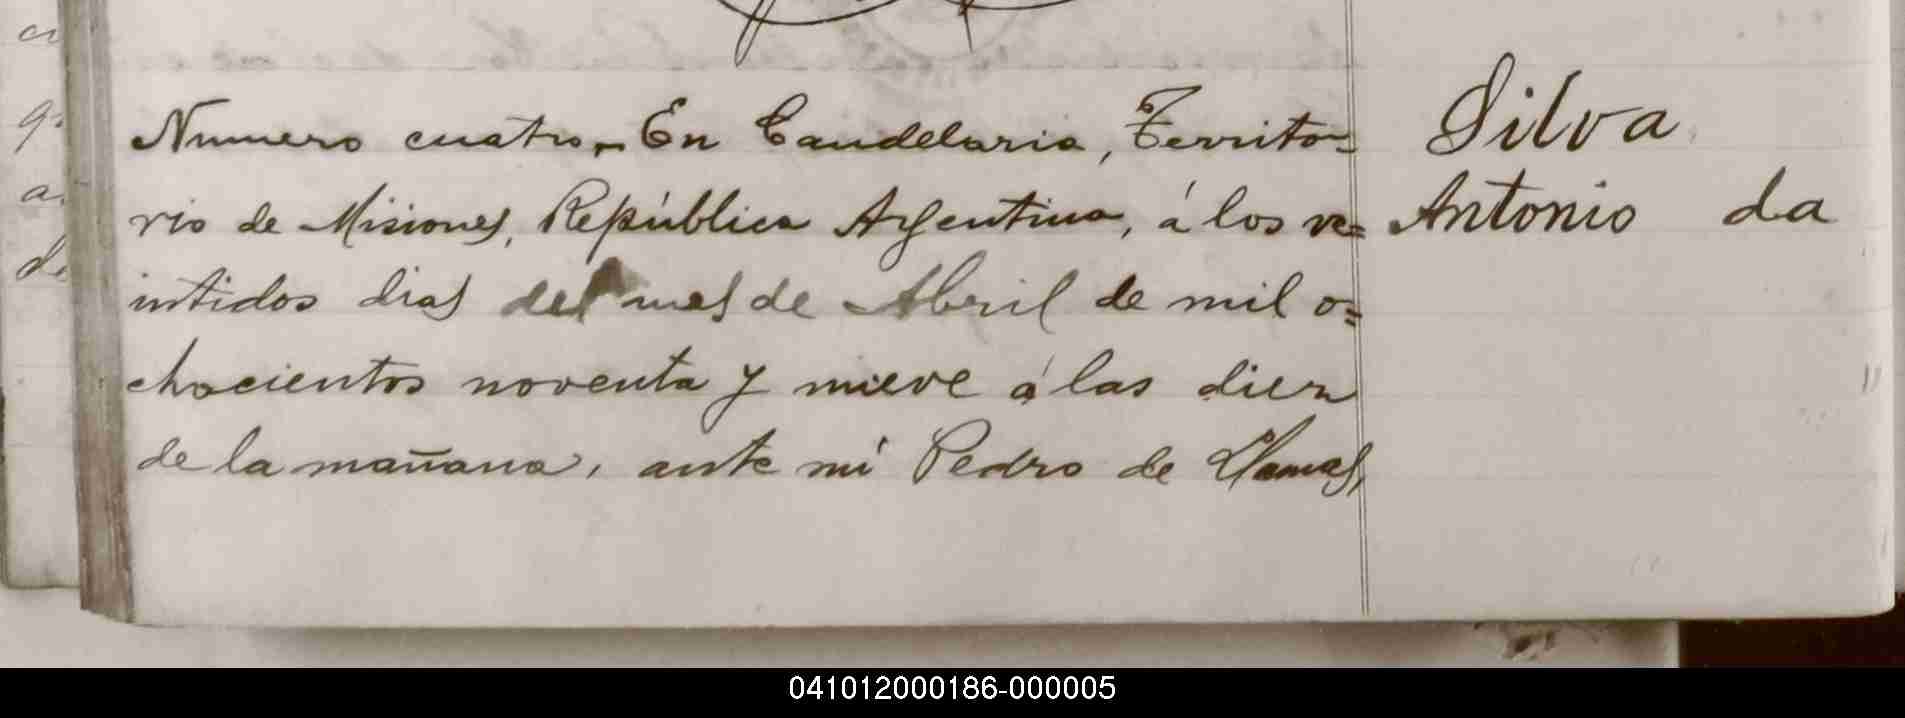 Numero cuatro. En Candelaria, Territo=
rio de Misiones, República Argentina, á los ve=
intidos dias del mes de Abril de mil o=
chocientos noventa y nueve á las diez
de la mañana, ante mí Pedro de Llamas,
Silva
Antonio da
041012000186-000005